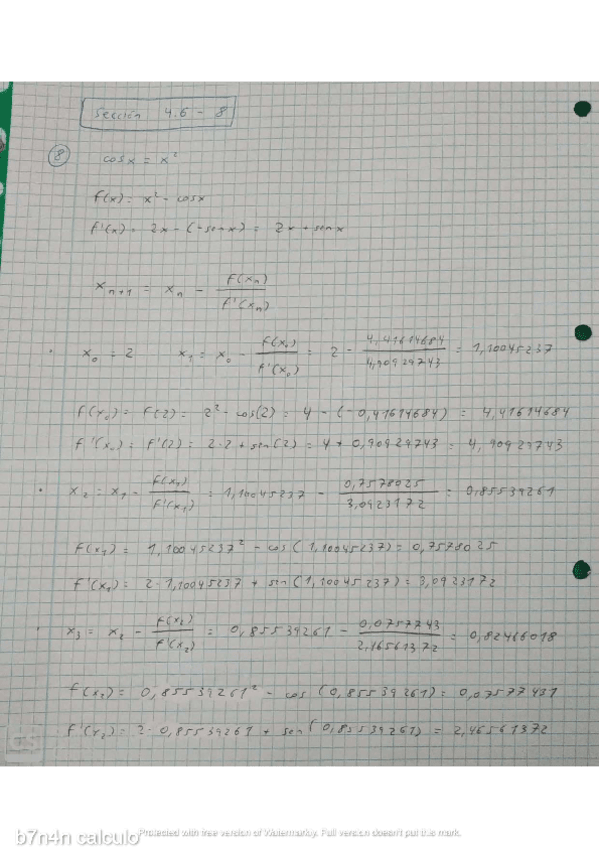 Sección 4.6 - 8
8 cosx = x²
f(x) = x² - cosx
f'(x) = 2x - (-senx) = 2x + senx
x_{n+1} = x_n - f(x_n) / f'(x_n)
x₀ = 2 x₁ = x₀ - f(x₀) / f'(x₀) = 2 - 4,41614684 / 4,90929743 = 1,10045237
f(x₀) = f(2) = 2² - cos(2) = 4 - (-0,41614684) = 4,41614684
f'(x₀) = f'(2) = 2·2 + sen(2) = 4 + 0,90929743 = 4,90929743
x₂ = x₁ - f(x₁) / f'(x₁) = 1,10045237 - 0,7578025 / 3,0923172 = 0,85539261
f(x₁) = 1,10045237² - cos(1,10045237) = 0,7578025
f'(x₁) = 2·1,10045237 + sin(1,10045237) = 3,0923172
x₃ = x₂ - f(x₂) / f'(x₂) = 0,85539261 - / = 0,82466018
f(x₂) = 0,85539261² - cos(0,85539261) =
f'(x₂) = 2·0,85539261 + sen(0,85539261) = 2,46561372
b7n4n calculo
Protected with free version of Watermarkly. Full version doesn't put this mark.